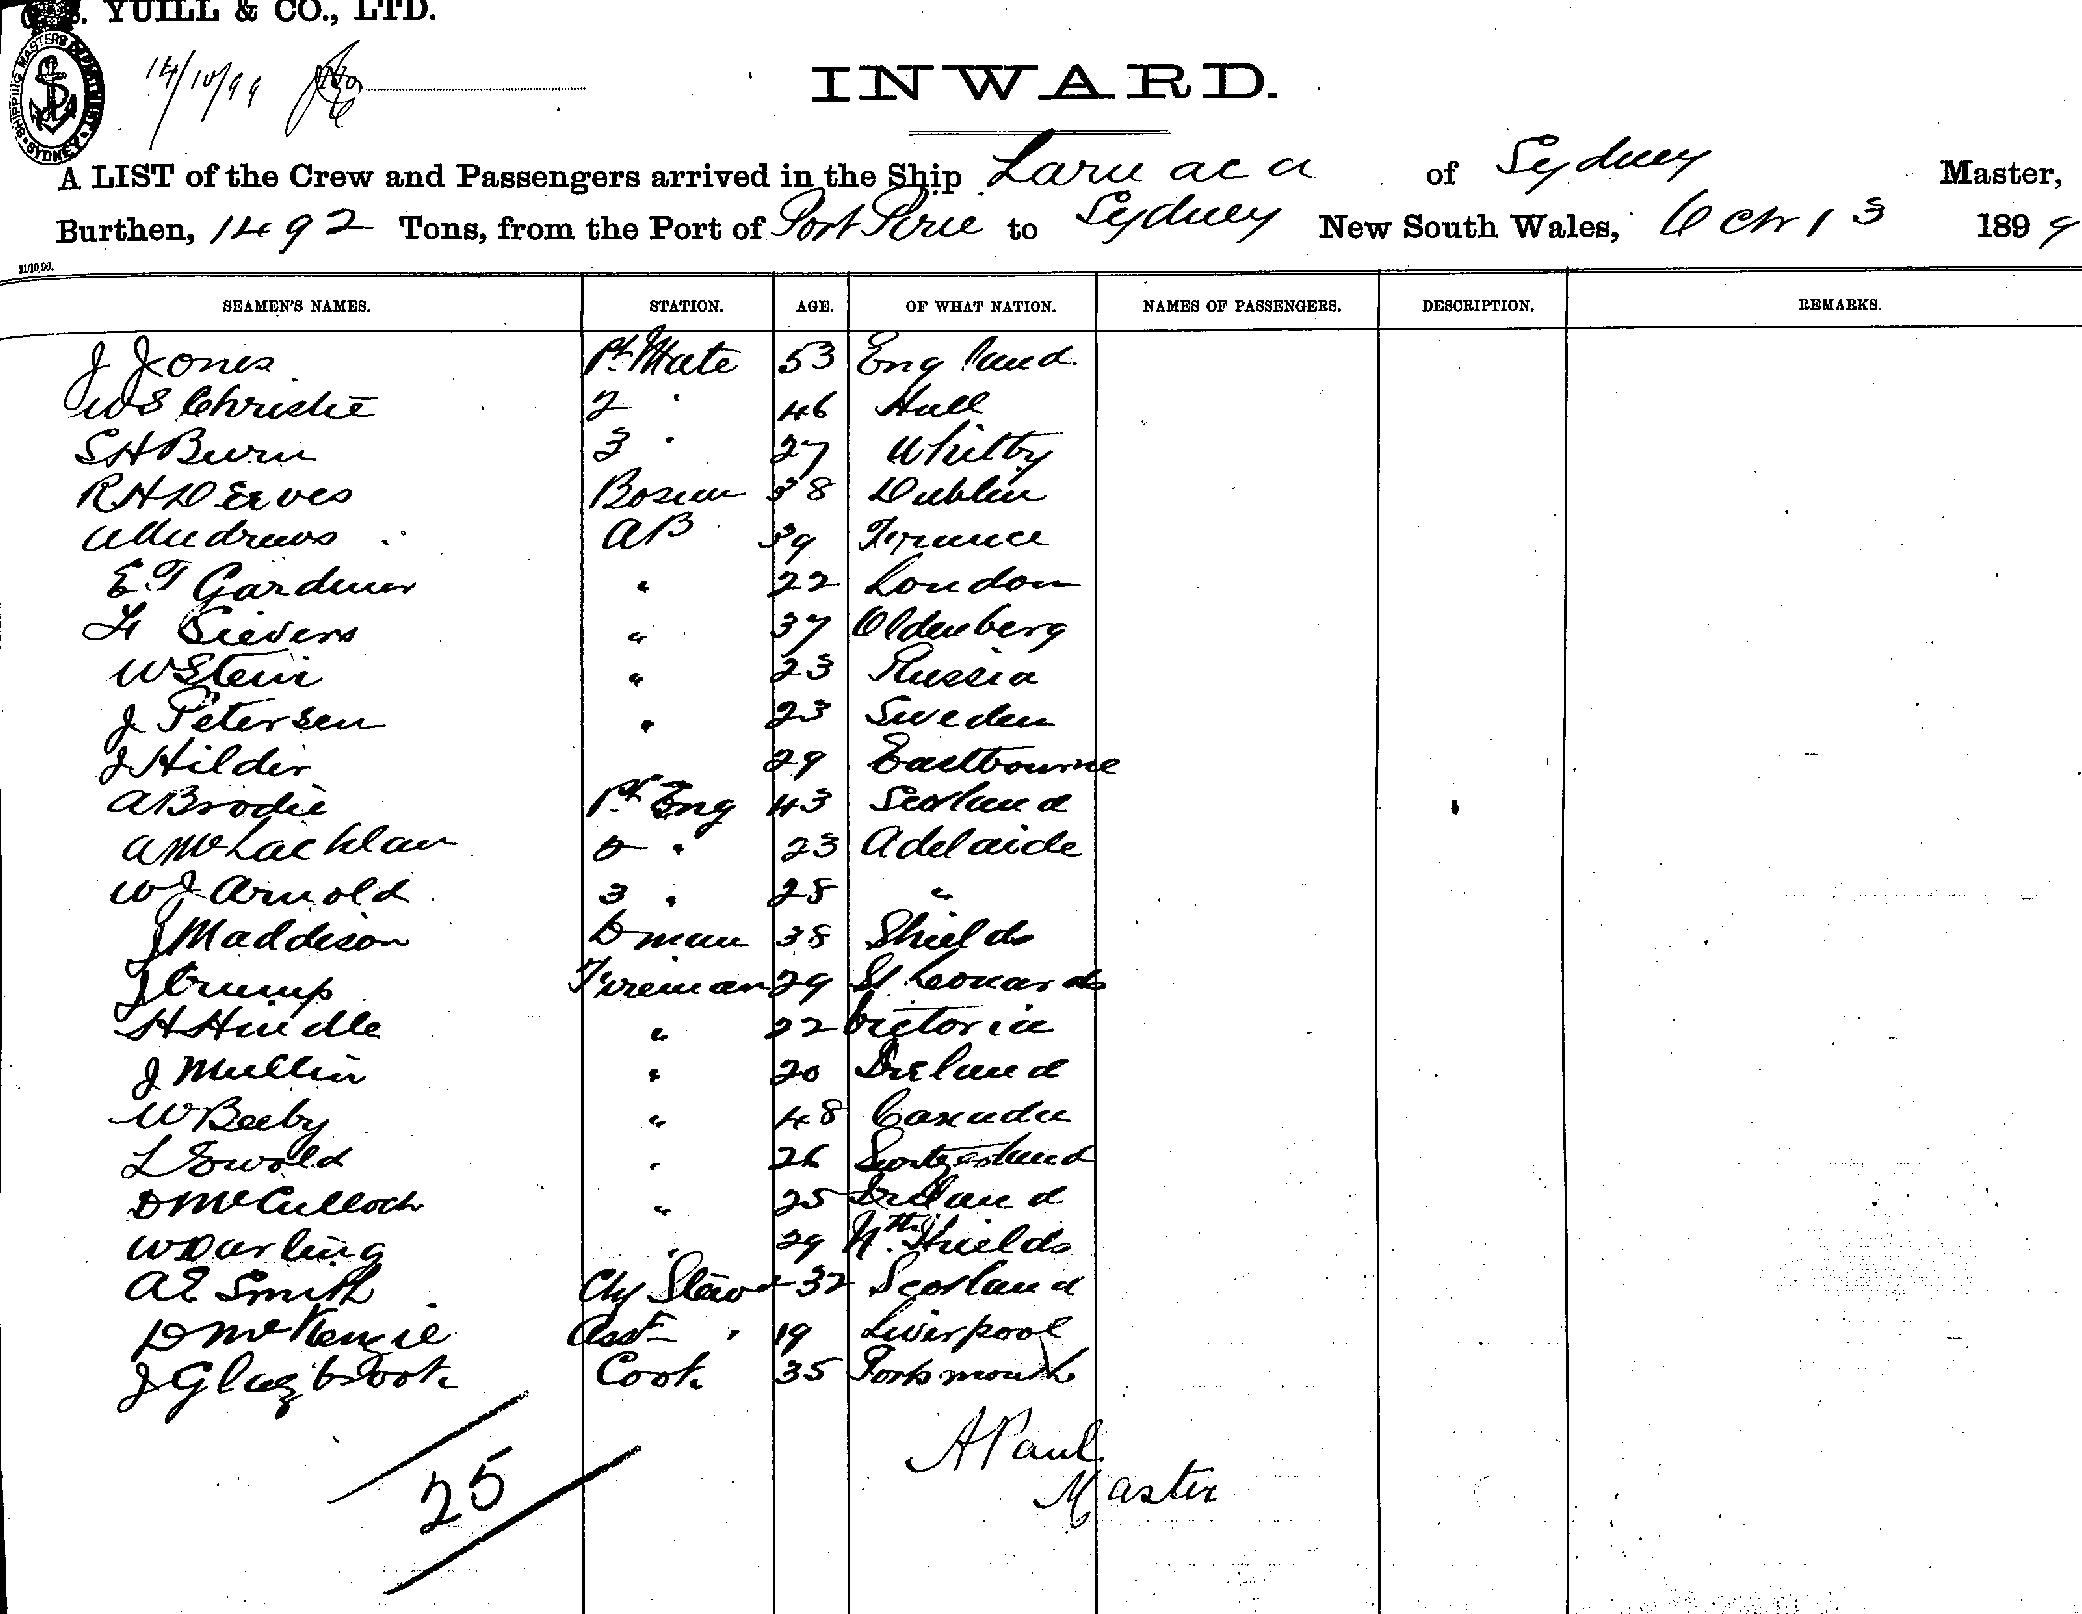 . YUILL & CO., LTD.
SHIPPING MASTERS DEPARTMENT SYDNEY
14/10/99
INWARD.
A LIST of the Crew and Passengers arrived in the Ship Larnaca of Sydney Master,
Burthen, 1492 Tons, from the Port of Port Pirie to Sydney New South Wales, Octr 13 1899
SEAMEN'S NAMES. STATION. AGE. OF WHAT NATION. NAMES OF PASSENGERS. DESCRIPTION. REMARKS.
J Jones 1st Mate 53 England
W S Christie 2 " 46 Hull
S H Burn 3 " 27 Whitby
R H Deeves Bosun 38 Dublin
Andrews AB 39 France
E T Gardiner " 22 London
H Sievers " 37 Oldenberg
W Stein " 23 Russia
J Petersen " 23 Sweden
J Hilder 29 Eastbourne
A Brodie 1st Eng 43 Scotland
A McLachlan 2 " 23 Adelaide
W J Arnold 3 " 28 "
J Maddison Dman 38 Shields
J Crump Fireman 29 St Leonards
H Hindle " 22 Victoria
J Mullin " 20 Ireland
W Beeby " 48 Canada
L Ewold " 26 Switzerland
D McCulloch " 25 Ireland
W Darling " 29 Nth Shields
A E Smith Chf Stewd 32 Scotland
D McKenzie Asst " 19 Liverpool
J Glazbrook Cook 35 Portsmouth
25
A Paul
Master